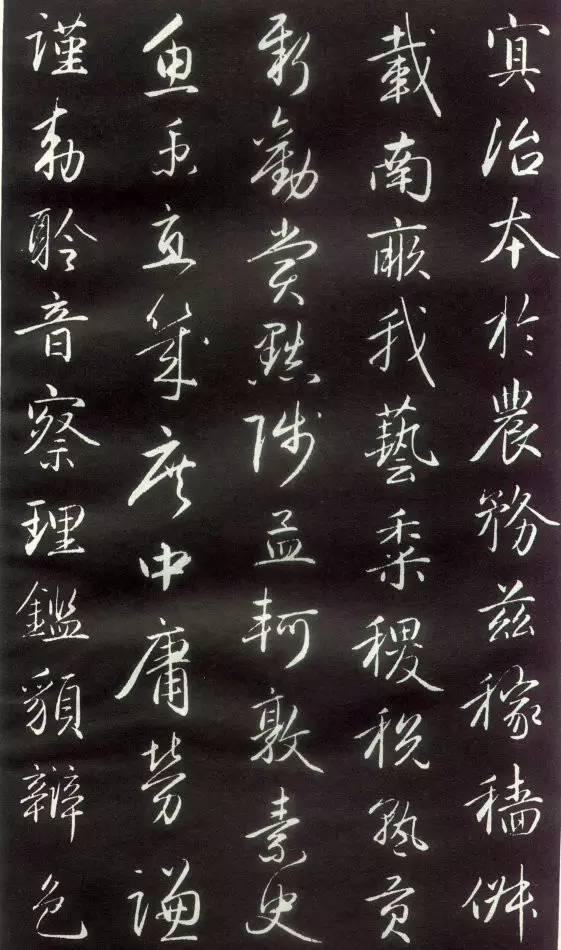 冥治本於農務茲稼穡俶
載南畝我藝黍稷稅熟貢
新勸賞黜陟孟軻敦素史
魚秉直幾庶中庸勞謙
謹勅聆音察理鑑貌辯色